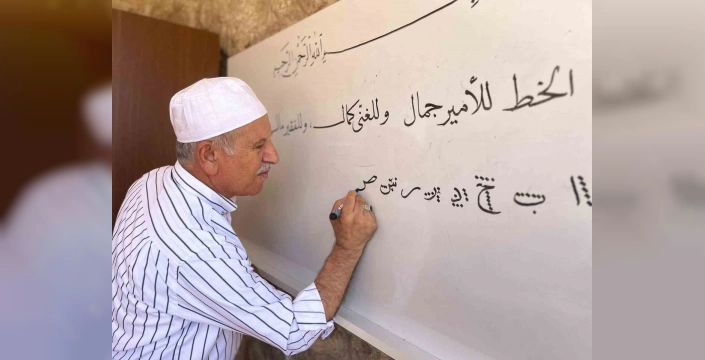 بسم الله الرحمن الرحيم
الخط للأمير جمال وللغني كمال وللفقير مال
ا ب ج د ر س ص